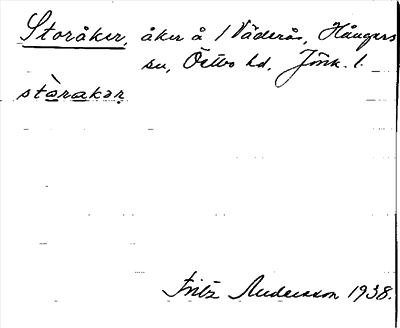 Storåker, åker å 1 Väderås, Hångers
sn, Östbo hd. Jönk. l.
stòrakər
Fritz Andersson 1938.